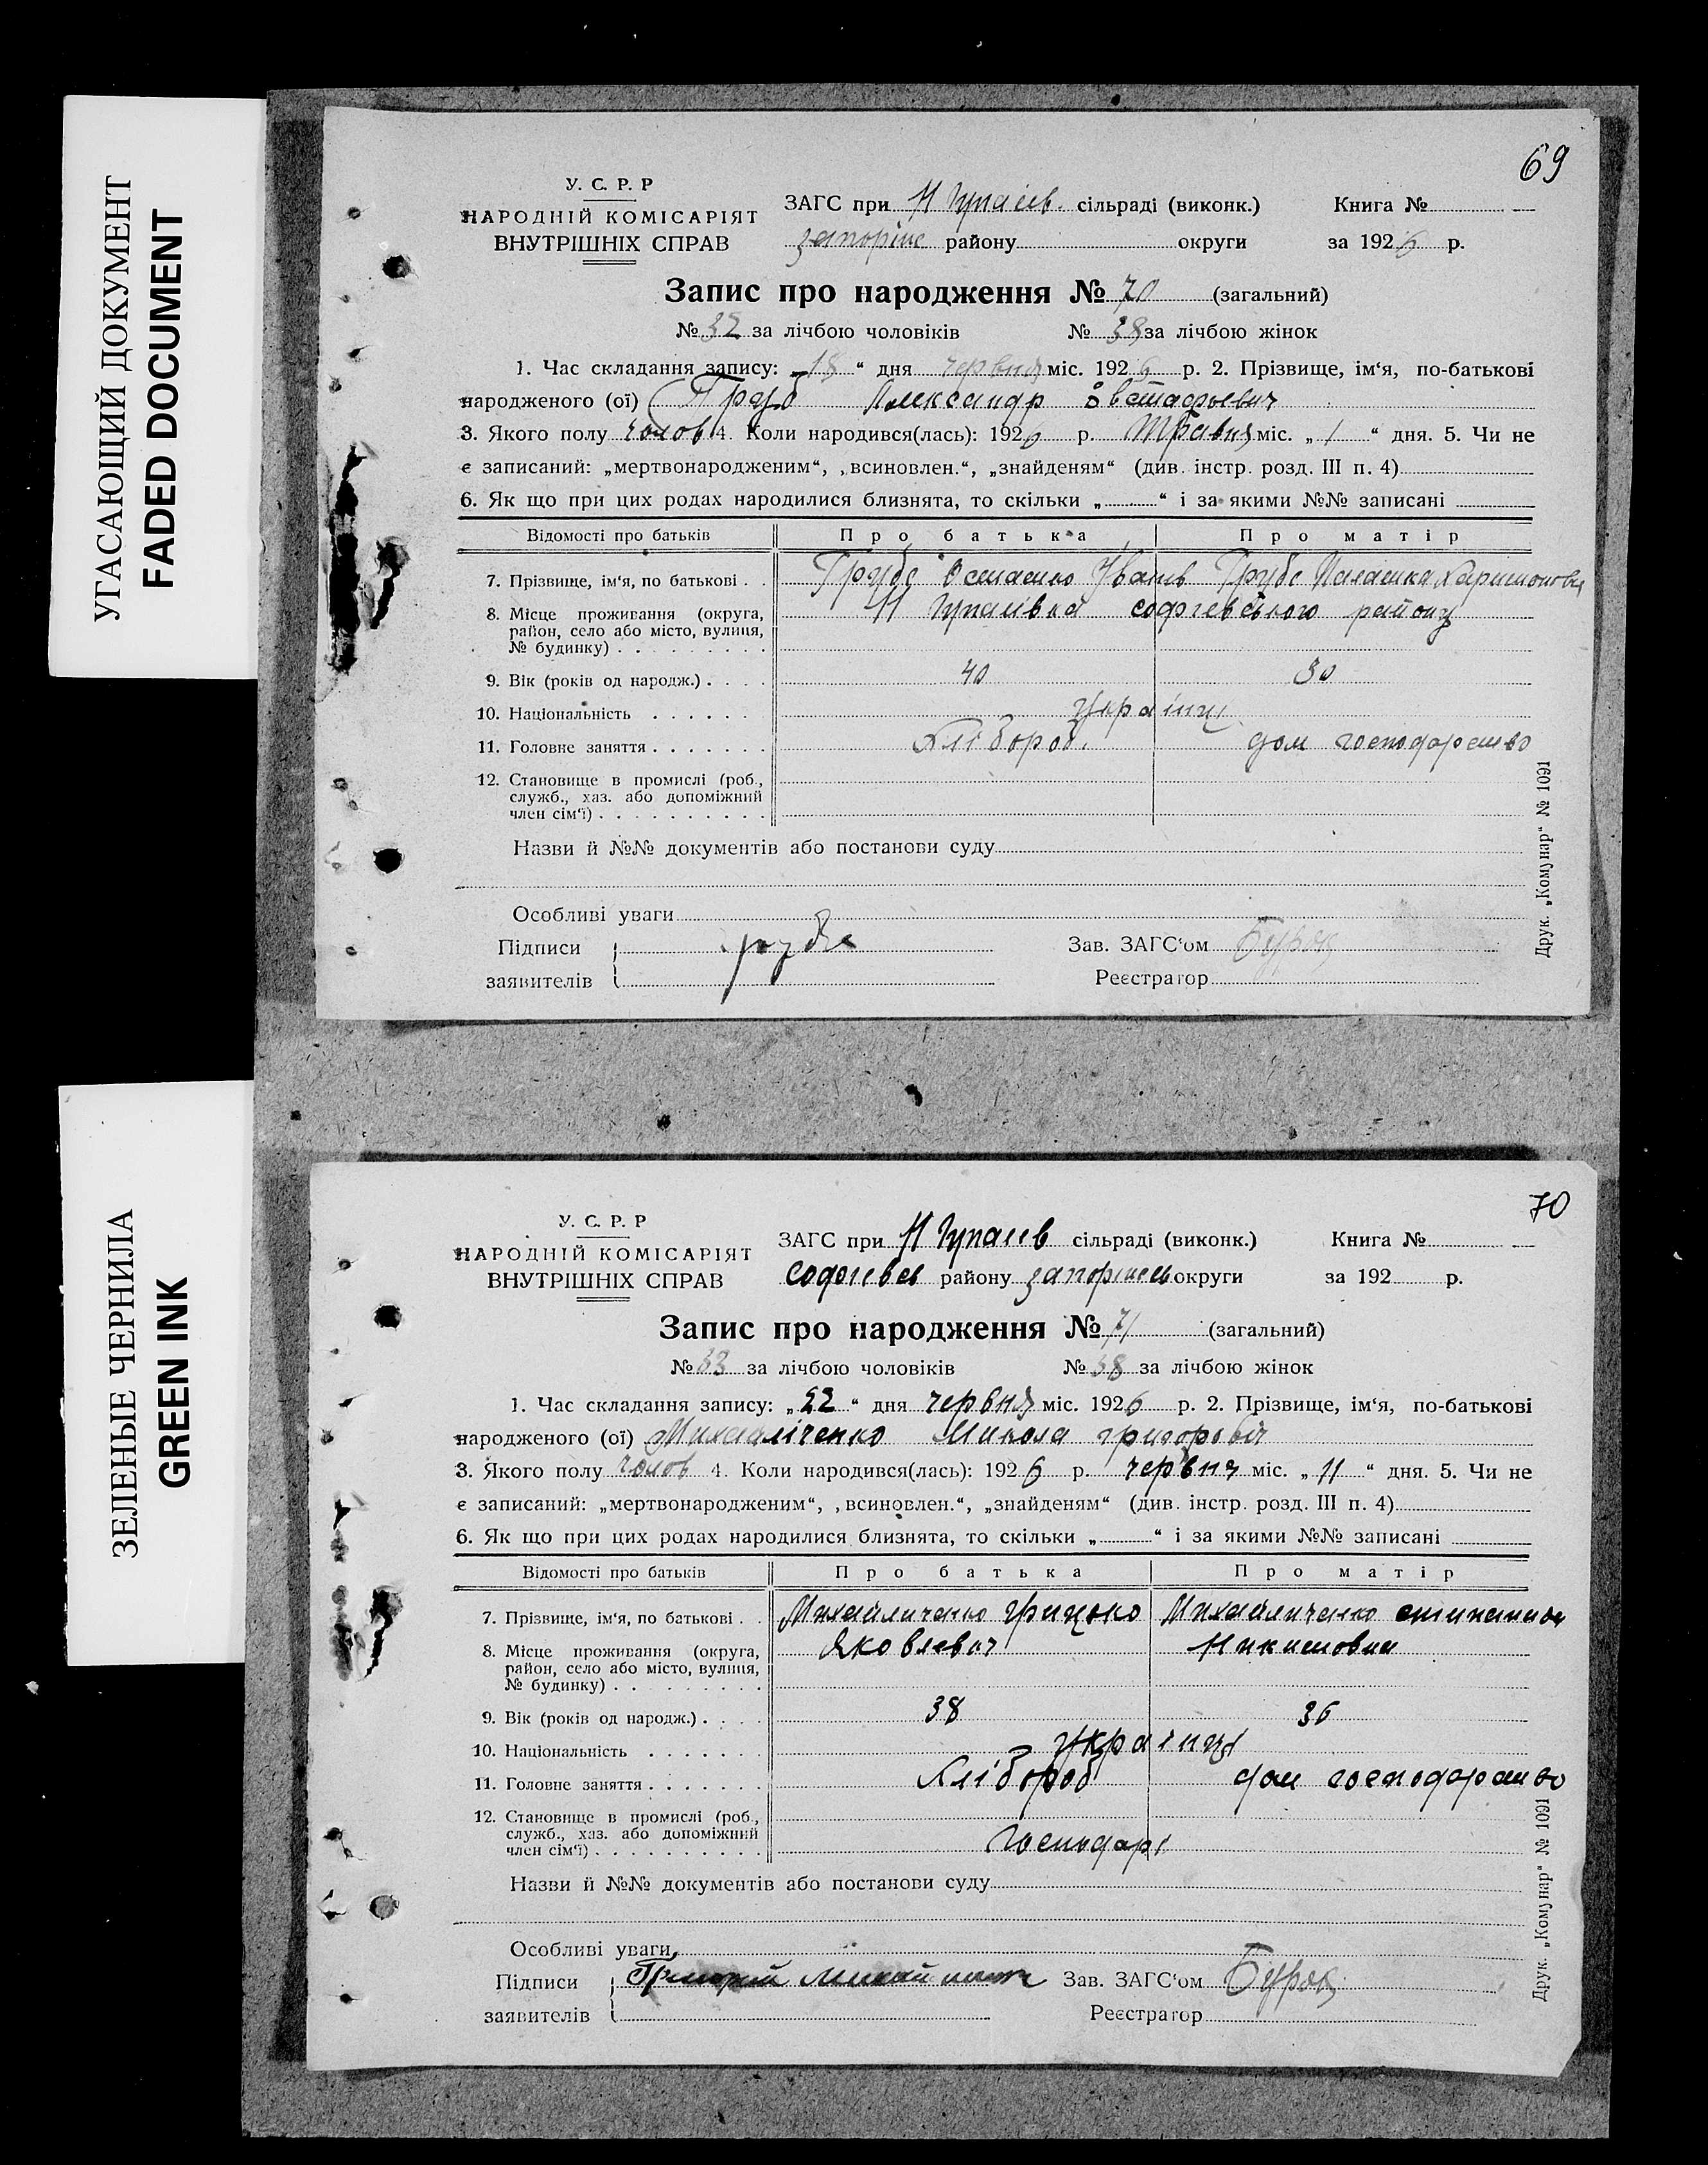 УГАСАЮЩИЙ ДОКУМЕНТ
FADED DOCUMENT
69
У. С. Р. Р
НАРОДНІЙ КОМІСАРІЯТ
ВНУТРІШНІХ СПРАВ
ЗАГС при сільраді (виконк.) Книга №
району округи за 1926 р.
Запис про народження № 70 (загальний)
№ 32 за лічбою чоловіків № 38 за лічбою жінок
1. Час складання запису: „18“ дня червня міс. 1926 р. 2. Прізвище, ім‘я, по-батькові
народженого (ої) Александр
3. Якого полу чолов 4. Коли народився(лась): 1926 р. Травня міс. „1“ дня. 5. Чи не
є записаний: „мертвонародженим“, „всиновлен.“, „знайденям“ (див. інстр. розд. III п. 4)
6. Як що при цих родах народилися близнята, то скільки „ “ і за якими №№ записані
Відомості про батьків Про батька Про матір
7. Прізвище, ім‘я, по батькові . .
8. Місце проживання (округа, району
район, село або місто, вулиця,
№ будинку) . . . . . . . . .
9. Вік (років од народж.) . . . . 40 30
10. Національність . . . . . . українці
11. Головне заняття . . . . . . . Хлібороб. дом господарство
12. Становище в промислі (роб.,
служб., хаз. або допоміжний
член сім‘ї) . . . . . . . . . .
Назви й №№ документів або постанови суду
Особливі уваги
Підписи Зав. ЗАГС‘ом
заявителів Реєстратор
Друк. „Комунар“ № 1091
ЗЕЛЕНЫЕ ЧЕРНИЛА
GREEN INK
70
У. С. Р. Р
НАРОДНІЙ КОМІСАРІЯТ
ВНУТРІШНІХ СПРАВ
ЗАГС при сільраді (виконк.) Книга №
району округи за 192 р.
Запис про народження № 71 (загальний)
№ 33 за лічбою чоловіків № 38 за лічбою жінок
1. Час складання запису: „22“ дня червня міс. 1926 р. 2. Прізвище, ім‘я, по-батькові
народженого (ої) Михайліченко Микола григоровіч
3. Якого полу чолов 4. Коли народився(лась): 1926 р. червня міс. „11“ дня. 5. Чи не
є записаний: „мертвонародженим“, „всиновлен.“, „знайденям“ (див. інстр. розд. III п. 4)
6. Як що при цих родах народилися близнята, то скільки „ “ і за якими №№ записані
Відомості про батьків Про батька Про матір
7. Прізвище, ім‘я, по батькові . . Михайличенко грицько Михайличенко
8. Місце проживання (округа, Яковлевич
район, село або місто, вулиця,
№ будинку) . . . . . . . . .
9. Вік (років од народж.) . . . . 38 36
10. Національність . . . . . . . українці
11. Головне заняття . . . . . . . Хлібороб дом господарство
12. Становище в промислі (роб., 
служб., хаз. або допоміжний
член сім‘ї) . . . . . . . . . . господарі
Назви й №№ документів або постанови суду
Особливі уваги
Підписи Зав. ЗАГС‘ом
заявителів Реєстратор
Друк. „Комунар“ № 1091